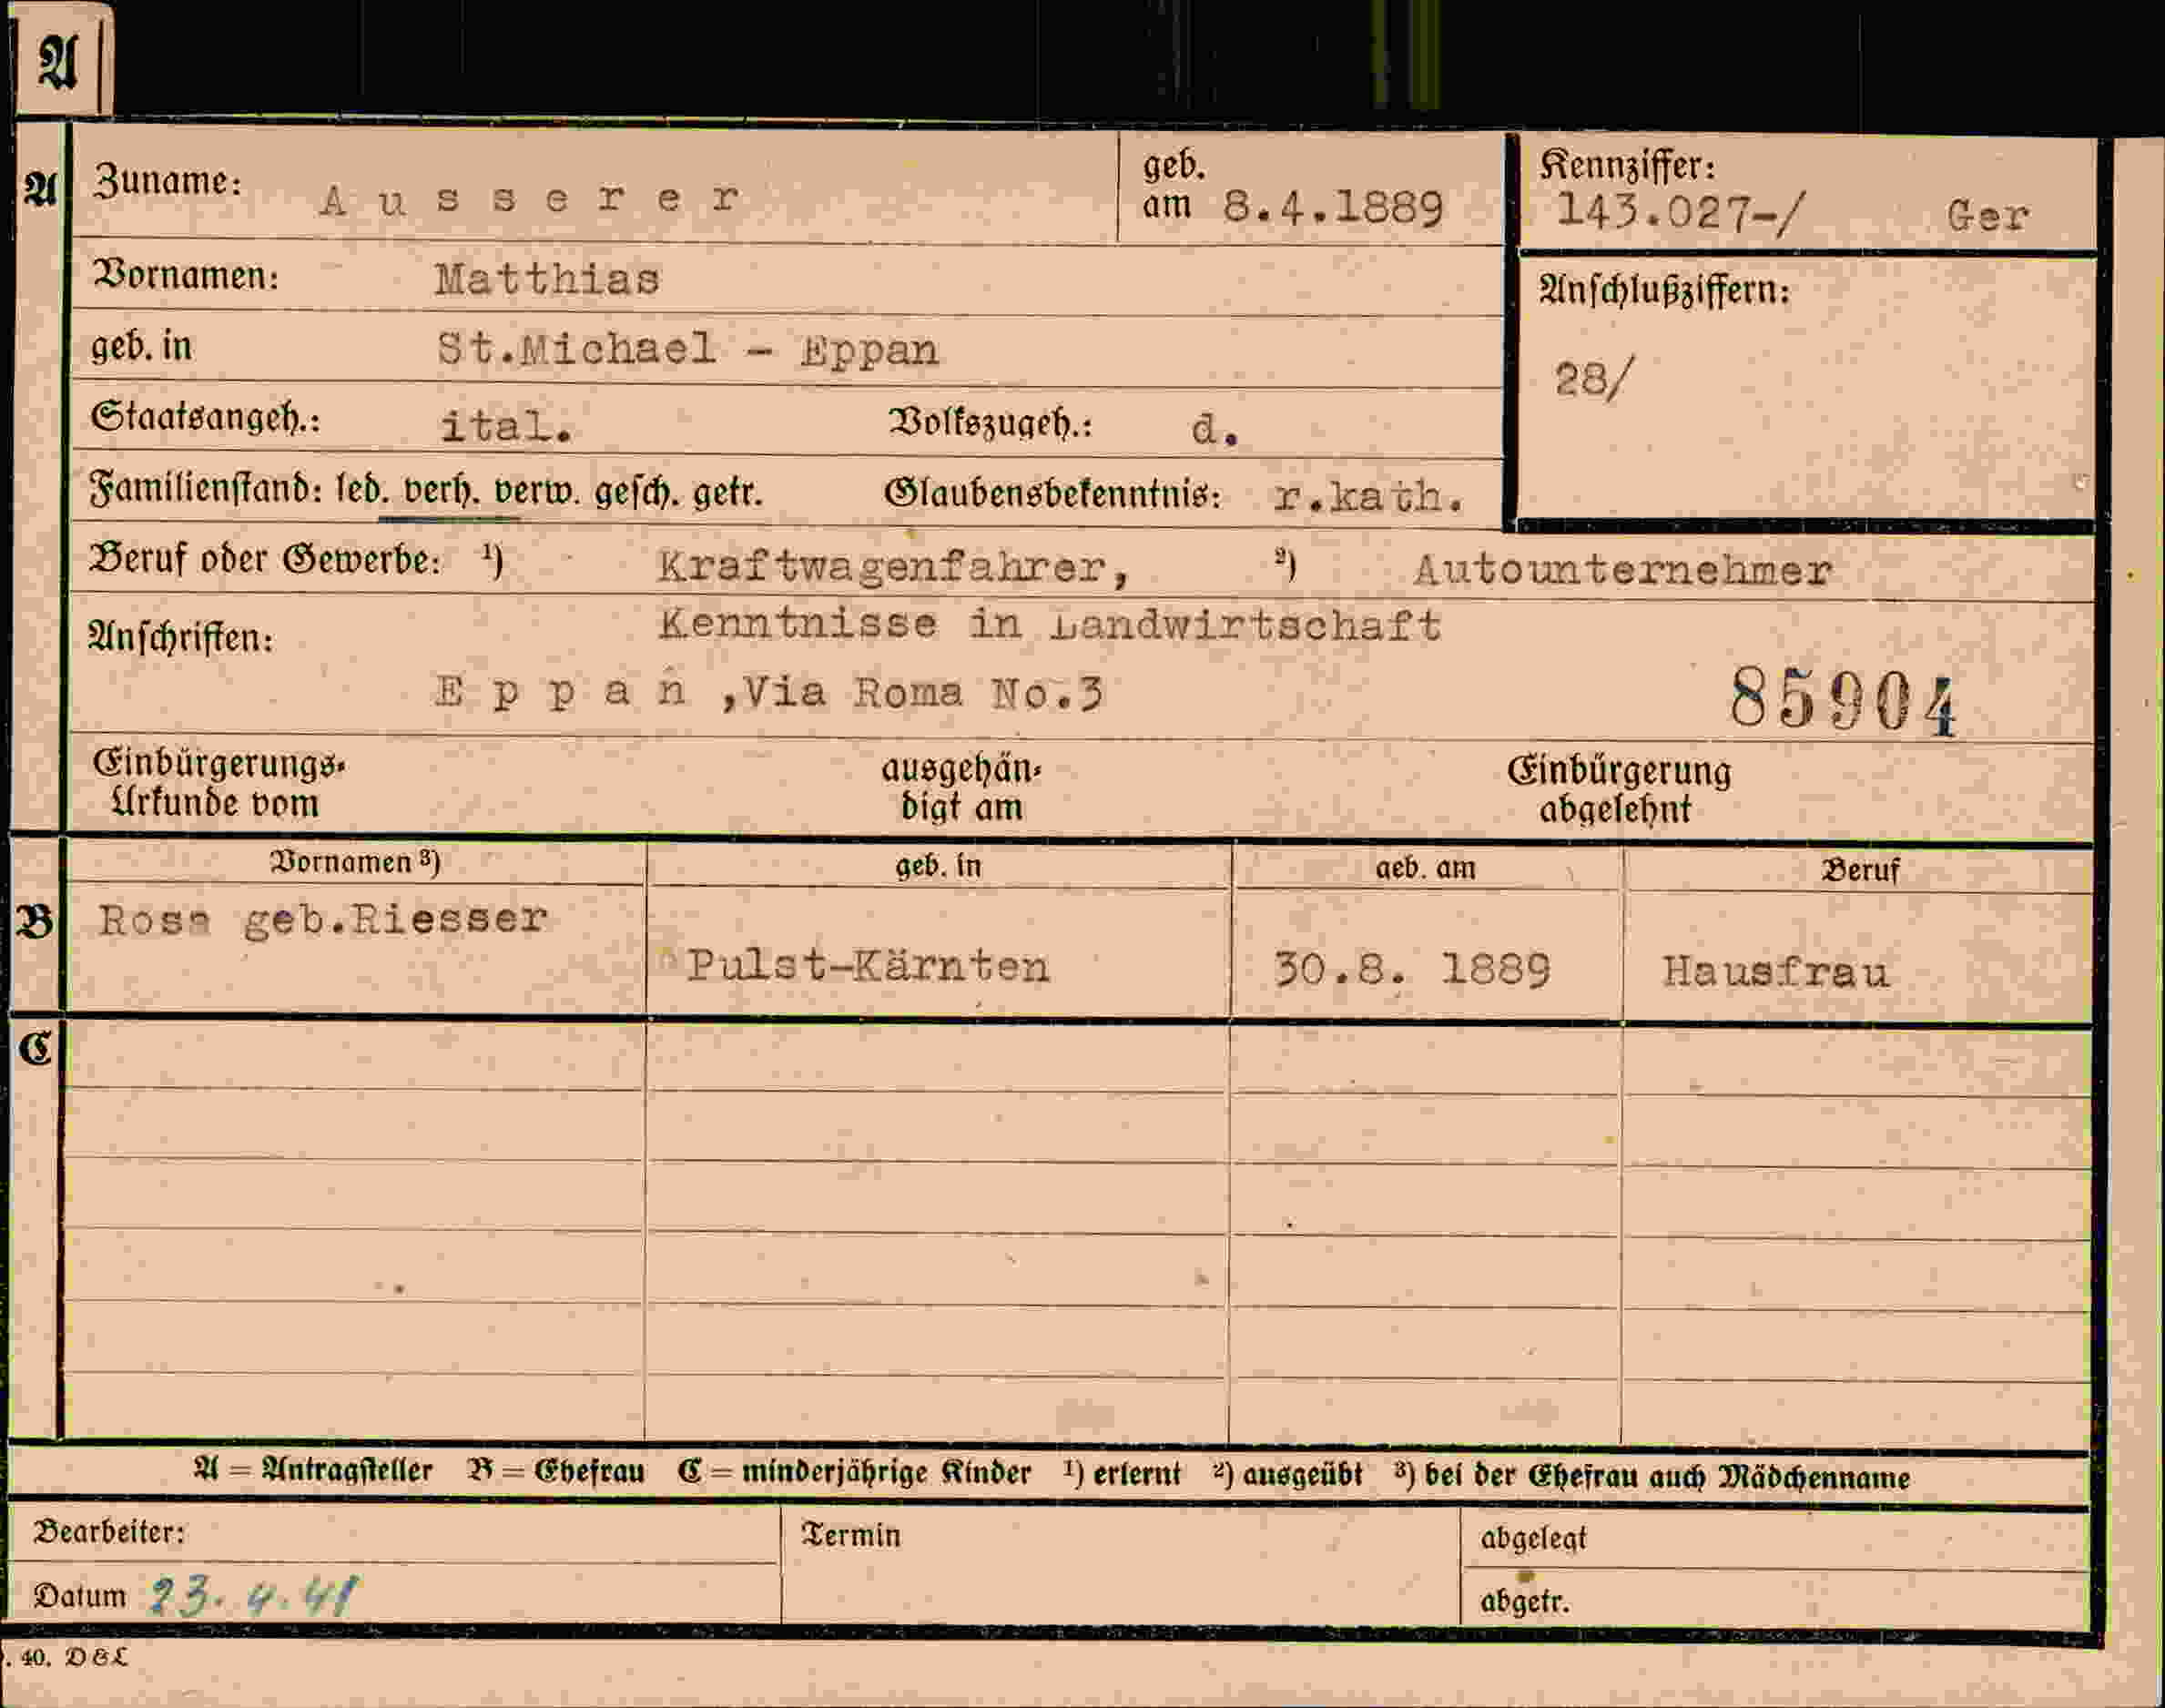 A
A Zuname: A u s s e r e r geb. am 8.4.1889 Kennziffer: 143.027-/ Ger
Vornamen: Matthias Anschlußziffern:
geb. in St.Michael - Eppan 28/
Staatsangeh.: ital. Volkszugeh.: d.
Familienstand: led. verh. verw. gesch. getr. Glaubensbekenntnis: r.kath.
Beruf oder Gewerbe: ¹) Kraftwagenfahrer, ²) Autounternehmer
Kenntnisse in Landwirtschaft
Anschriften:
E p p a n ,Via Roma No.3 85904
Einbürgerungs- ausgehän- Einbürgerung
Urkunde vom digt am abgelehnt
Vornamen ³) geb. in geb. am Beruf
B Rosa geb.Riesser
Pulst-Kärnten 30.8. 1889 Hausfrau
C
A = Antragsteller B = Ehefrau C = minderjährige Kinder ¹) erlernt ²) ausgeübt ³) bei der Ehefrau auch Mädchenname
Bearbeiter: Termin abgelegt
Datum 23.4.41 abgetr.
. 40. D & L